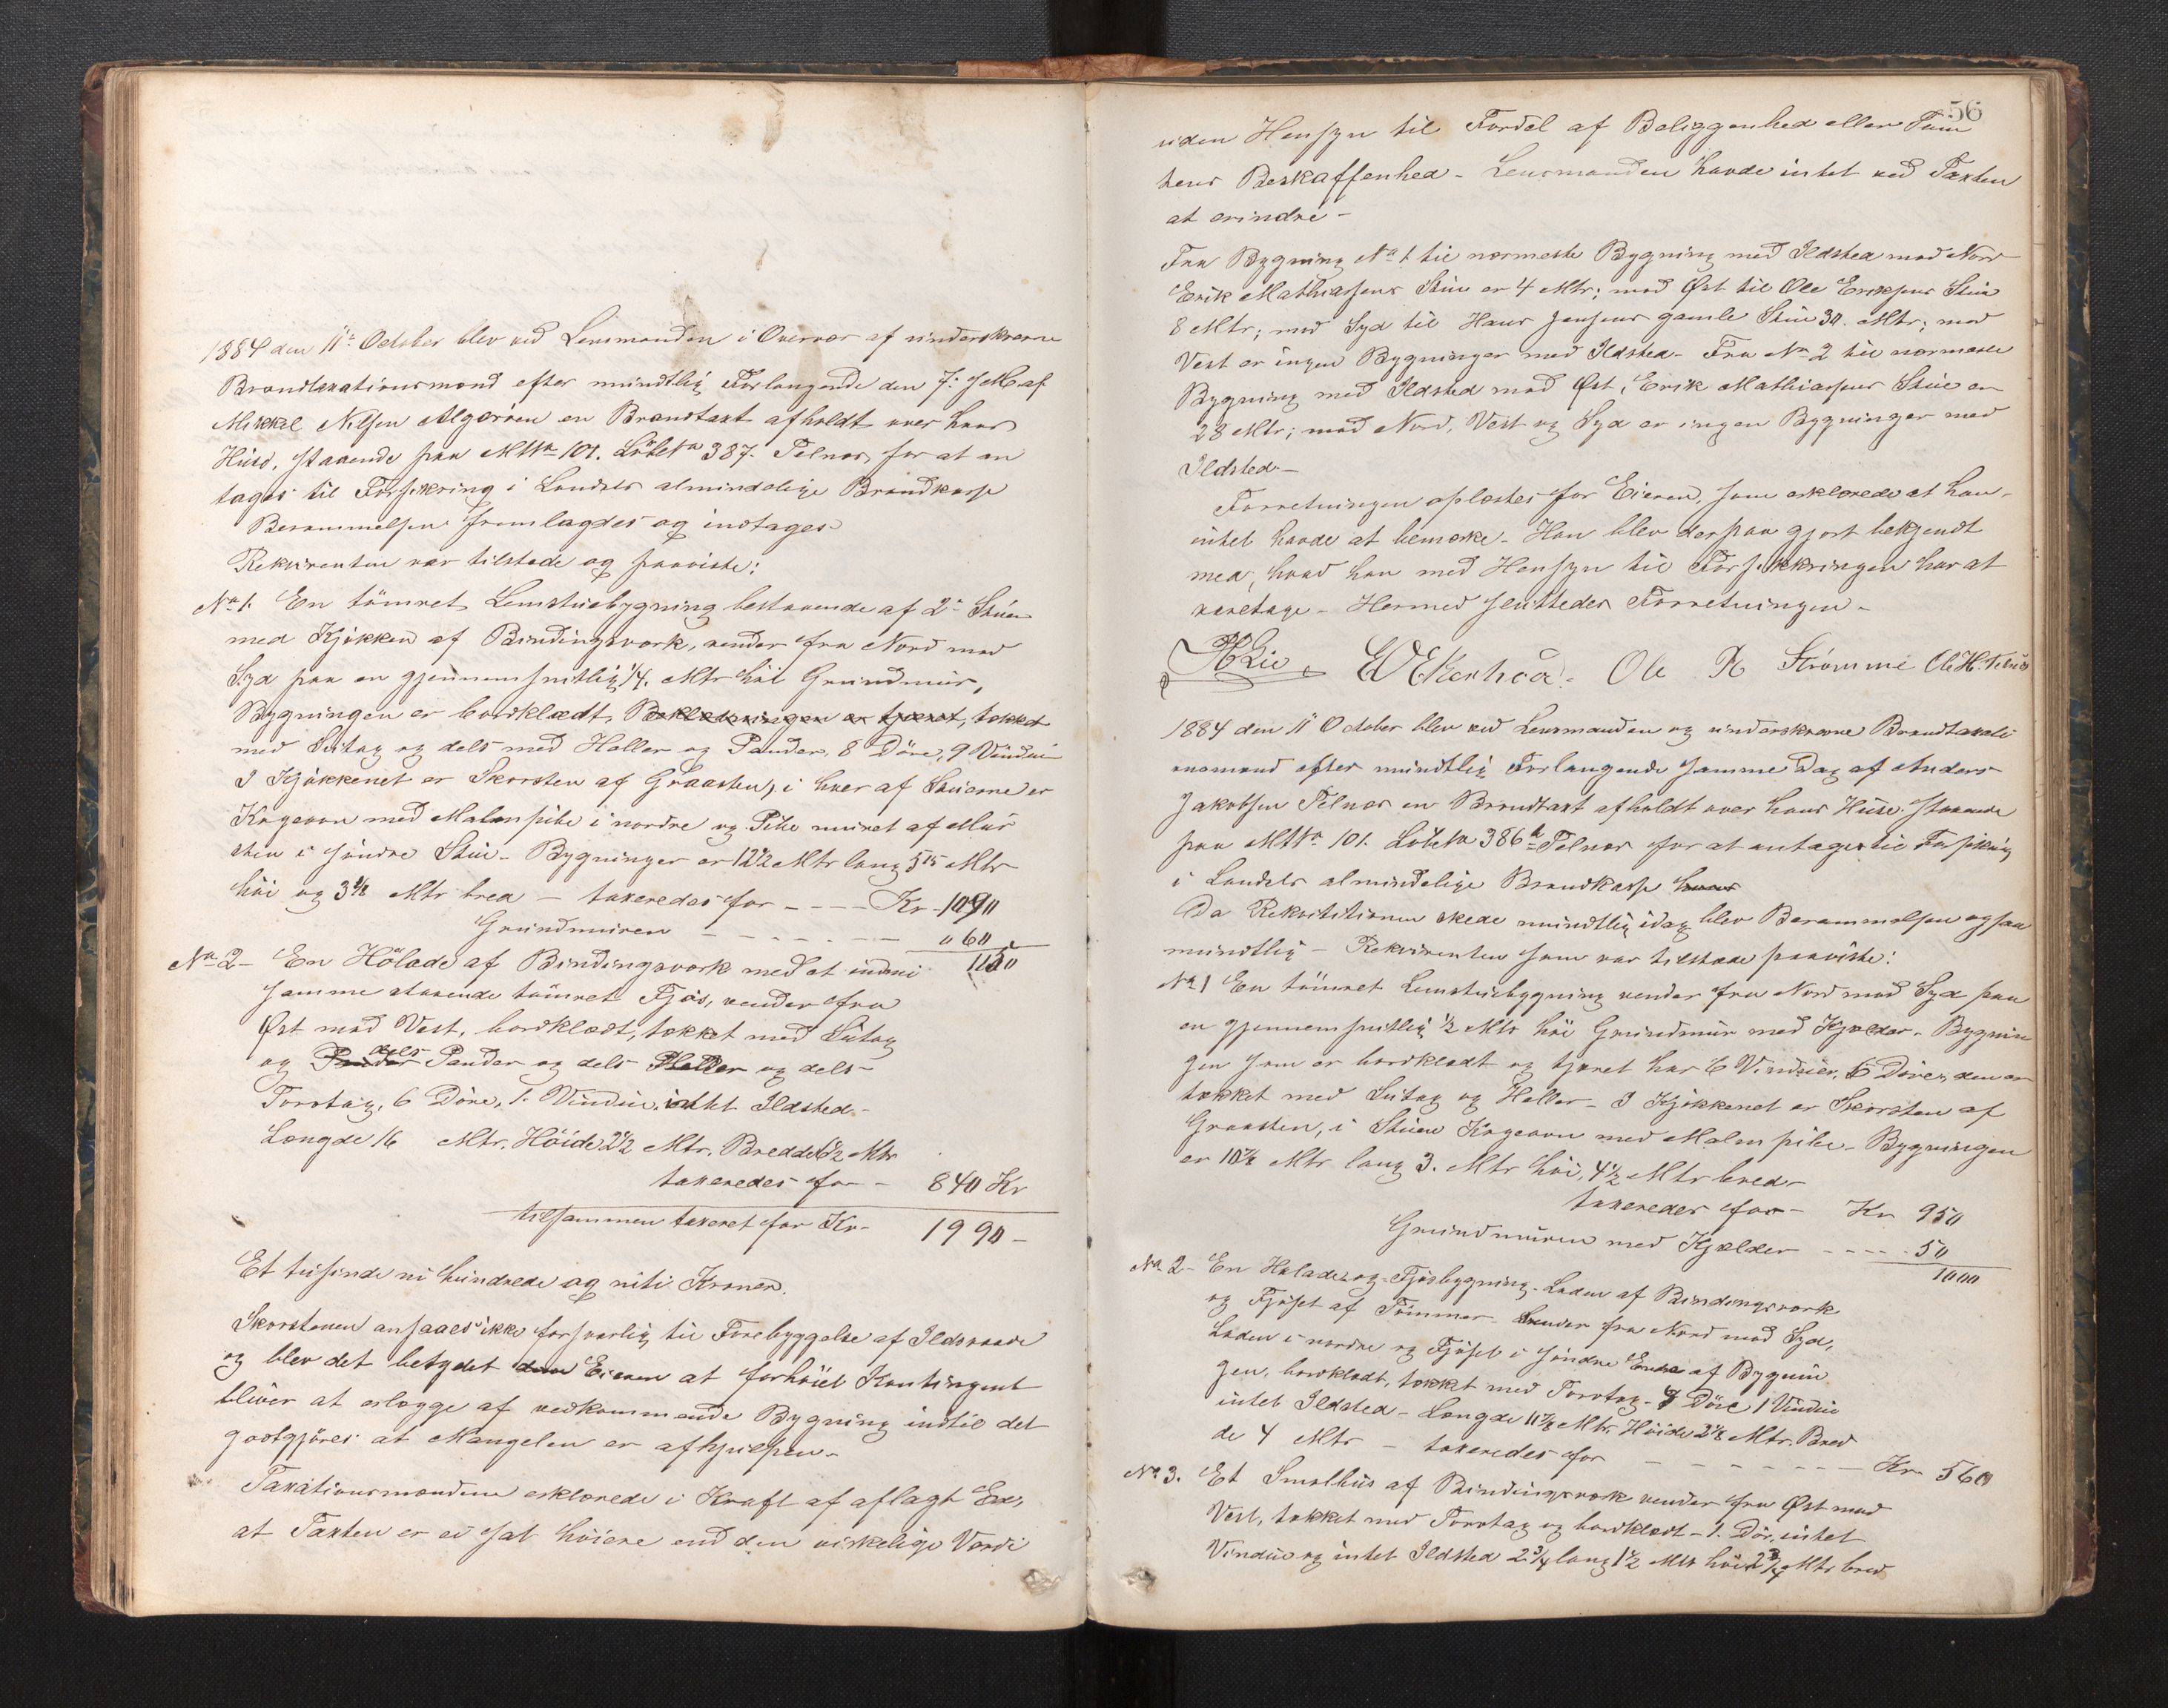 1884 den 11te October blev ved Lensmanden i Overvær af underskrevne
Brandtaxationsmænd efter mundtlig Forlangende den 7. ds M af
Mikkel Nilsen Algerøen en Brandtaxt afholdt over hans
Huse, staaende paa MtNo 101. LöbeNo 387. Telnæs, for at an
tages til Forsikring i Landets almindelige Brandkasse
Berammelsen fremlagdes og indtages
Rekvirenten var tilstede og paaviste:
No 1. En tömret Lemstuebygning bestaaende af 2de Stuer
med Kjøkken af Bindingsværk, vender fra Nord mod
Syd paa en gjennemsnitlig 1/4. Mtr höi Grundmur,
Bygningen er bordklædt, Beklædningen er tjæret, tækket
med Sutag og dels med Heller og Pander, 8 Döre, 9 Vinduer
I Kjøkkenet er Skorsten af Graasten, i hver af Stuerne er
Kogeovn med Malmpibe i nordre og Pibe muret af Mur
sten i söndre Stue - Bygninger er 12 1/2 Mtr lang
höi og Mtr bred - taxeredes for - - - - Kr - 1090
Grundmuren - - - - - - " 60
1150
No 2 - En Hölade af Bindingsværk med et indeni
samme staaende tömret Fjös, vender fra
Øst mod Vest, bordklædt, tækket med Sutag
og Pander dels Pander og dels Heller og dels
Torvtag, 6 Döre, 1. Vindue, intet Ildsted -
Længde 16 Mtr. Höide 2 1/2 Mtr. Bredde Mtr
taxeredes for - 840 Kr
tilsammen taxeret for Kr - 1990 -
Et tusinde ni hundrede og niti Kroner.
Skorstenen ansaaes ikke forsvarlig til Forebyggelse af Ildsvaade
og blev det betydet den Eieren at forhöiet Kontingent
bliver at erlægge af vedkommende Bygning indtil det
godtgjöres at Mangelen er afhjulpen -
Taxationsmændene erklærede i Kraft af aflagt Ed,
at Taxten er ei sat höiere end den virkelige Værdi
56
uden Hensyn til Fordel af Beliggenhed eller Tom
tens Beskaffenhed - Lensmanden havde intet ved Taxten
at erindre -
Fra Bygning No 1 til nærmeste Bygning med Ildsted mod Nord
Erik Mathiassens Stue er 4 Mtr; mod Øst til Ole Eriksens Stue
8 Mtr; mod Syd til Hans Jensens gamle Stue 30. Mtr; mod
Vest er ingen Bygninger med Ildsted - Fra No 2 til nærmeste
Bygning med Ildsted mod Øst, Erik Mathiassens Stue er
28 Mtr; mod Nord, Vest og Syd er ingen Bygninger med
Ildsted -
Forretningen oplæstes for Eieren, som erklærede at han
intet havde at bemærke - Han blev derpaa gjort bekjendt
med, hvad han med Hensyn til Forsikkringen har at
varetage - Hermed sluttedes Forretningen -
Lie Ole Strømme Ole H.
1884 den 11te October blev ved Lensmanden og underskrevne Brandtaxati
onsmænd efter mundtlig Forlangende samme Dag af Anders
Jakobsen Telnæs en Brandtaxt afholdt over hans Huse staaende
paa MtNo 101. LöbeNo 386 a Telnæs for at antages til Forsikring
i Landets almindelige Brandkasse hvor
Da Rekvisitionen skede mundtlig idag blev Berammelsen ogsaa
mundtlig - Rekvirenten som var tilstede paaviste:
No 1 En tömret Lemstuebygning vender fra Nord mod Syd paa
en gjennemsnitlig 1/2 Mtr höi Grundmur med Kjælder - Bygnin
gen som er bordklædt og tjæret har 6 Vinduer, 5 Döre, den er
tækket med Sutag og Heller - I Kjökkenet er Skorsten af
Graasten, i Stuen Kogeovn med Malmpibe - Bygningen
er 10 1/2 Mtr lang 3. Mtr höi, 4 1/2 Mtr bred -
taxeredes for - Kr 950
Grundmuren med Kjælder - - - - 50
1000
No 2 - En Hölade og Fjösbygning - Laden af Bindingsværk
og Fjöset af Tömmer - vender fra Nord mod Syd,
Laden i nordre og Fjöset i söndre Ende af Bygnin
gen, bordklædt, tækket med Torvtag - Döre 1 Vindue
intet Ildsted - Længde 11 1/2 Mtr. Höide Mtr. Bred
de 4 Mtr - taxeredes for - - - - - - Kr 560
No 3. Et Smalhus af Bindingsværk vender fra Øst mod
Vest, tækket med Torvtag og bordklædt - 1. Dör, intet
Vindue og intet Ildsted 2 3/4 lang 1 1/2 Mtr höi Mtr bred